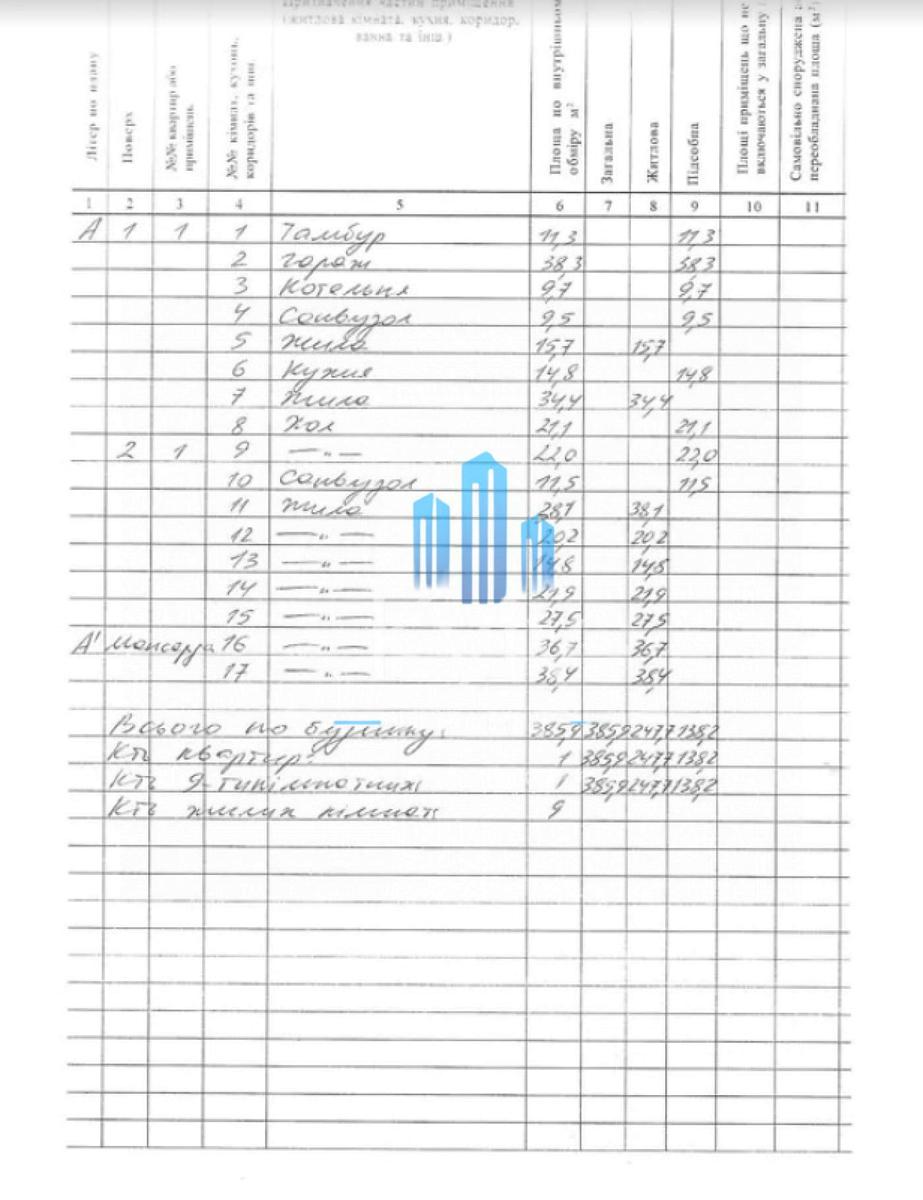 Призначення частин приміщення
(житлова кімната, кухня, коридор,
ванна та інш.)
Літер по плану
Поверх
№№ квартир або
приміщень
№№ кімнат, кухонь,
коридорів та інш.
Площа по внутрішньому
обміру м²
Загальна
Житлова
Підсобна
Площі приміщень що не
включаються у загальну
Самовільно споруджена
переобладнана площа (м²)
1 2 3 4 5 6 7 8 9 10 11
А 1 1 1 Тамбур 11,3 11,3
2 гараж 38,3 38,3
3 Котельня 9,7 9,7
4 Санвузол 9,5 9,5
5 Жила 15,7 15,7
6 Кухня 14,8 14,8
7 Жила 34,4 34,4
8 Хол 21,1 21,1
2 1 9 — " — 22,0 22,0
10 Санвузол 11,5 11,5
11 Жила 38,1
12 — " — 20,2 20,2
13 — " — 14,8 14,8
14 — " — 21,9 21,9
15 — " — 27,5 27,5
А' Мансарда 16 — " — 36,7 36,7
17 — " — 38,4 38,4
Всього по будинку: 385,9 385,9 247,7 138,2
Кть квартир: 1 385,9 247,7 138,2
Кть 9-тикімнатних 1 385,9 247,7 138,2
Кть жилих кімнат 9